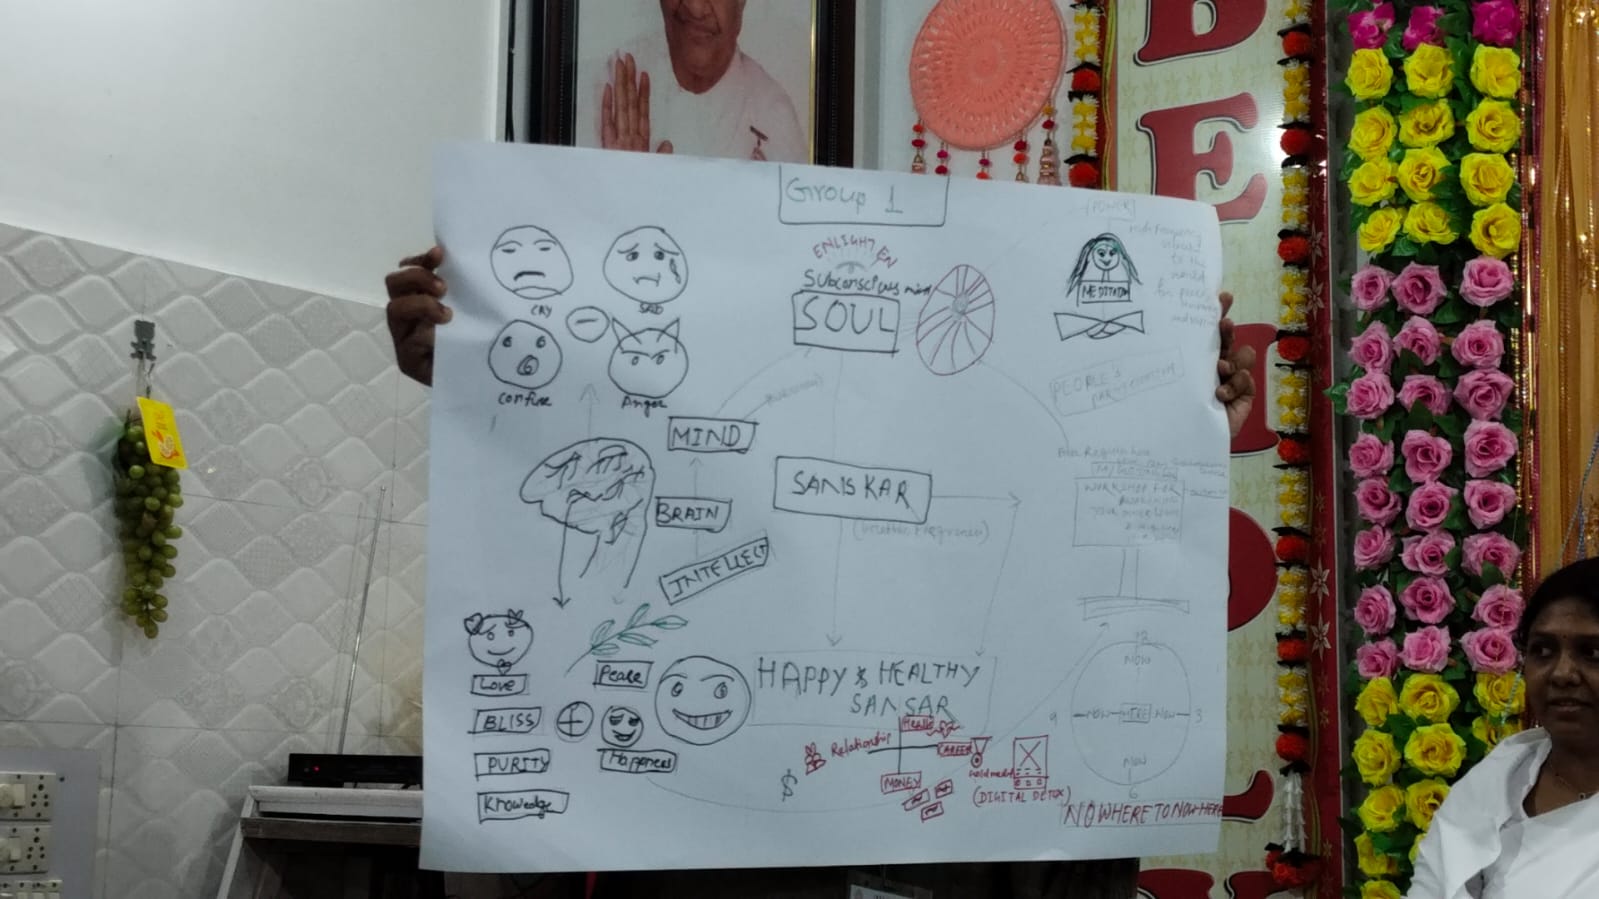 Group 1
ENLIGHTEN
Subconscious mind
SOUL
CRY
SAD
Confuse
Anger
MIND
BRAIN
INTELLECT
SANSKAR
Love
Peace
BLISS
PURITY
Happiness
Knowledge
HAPPY & HEALTHY
SANSAR
Relationship
Health
CAREER
MONEY
$
Gold medal
(DIGITAL DETOX)
(POWER)
High frequency
to the
world
MEDITATION
PEOPLE'S
WORKSHOP FOR
AWAKENING
12
NOW
9
NOW
HERE
NOW
3
NOW
6
NOWHERE TO NOW-HERE
B
E